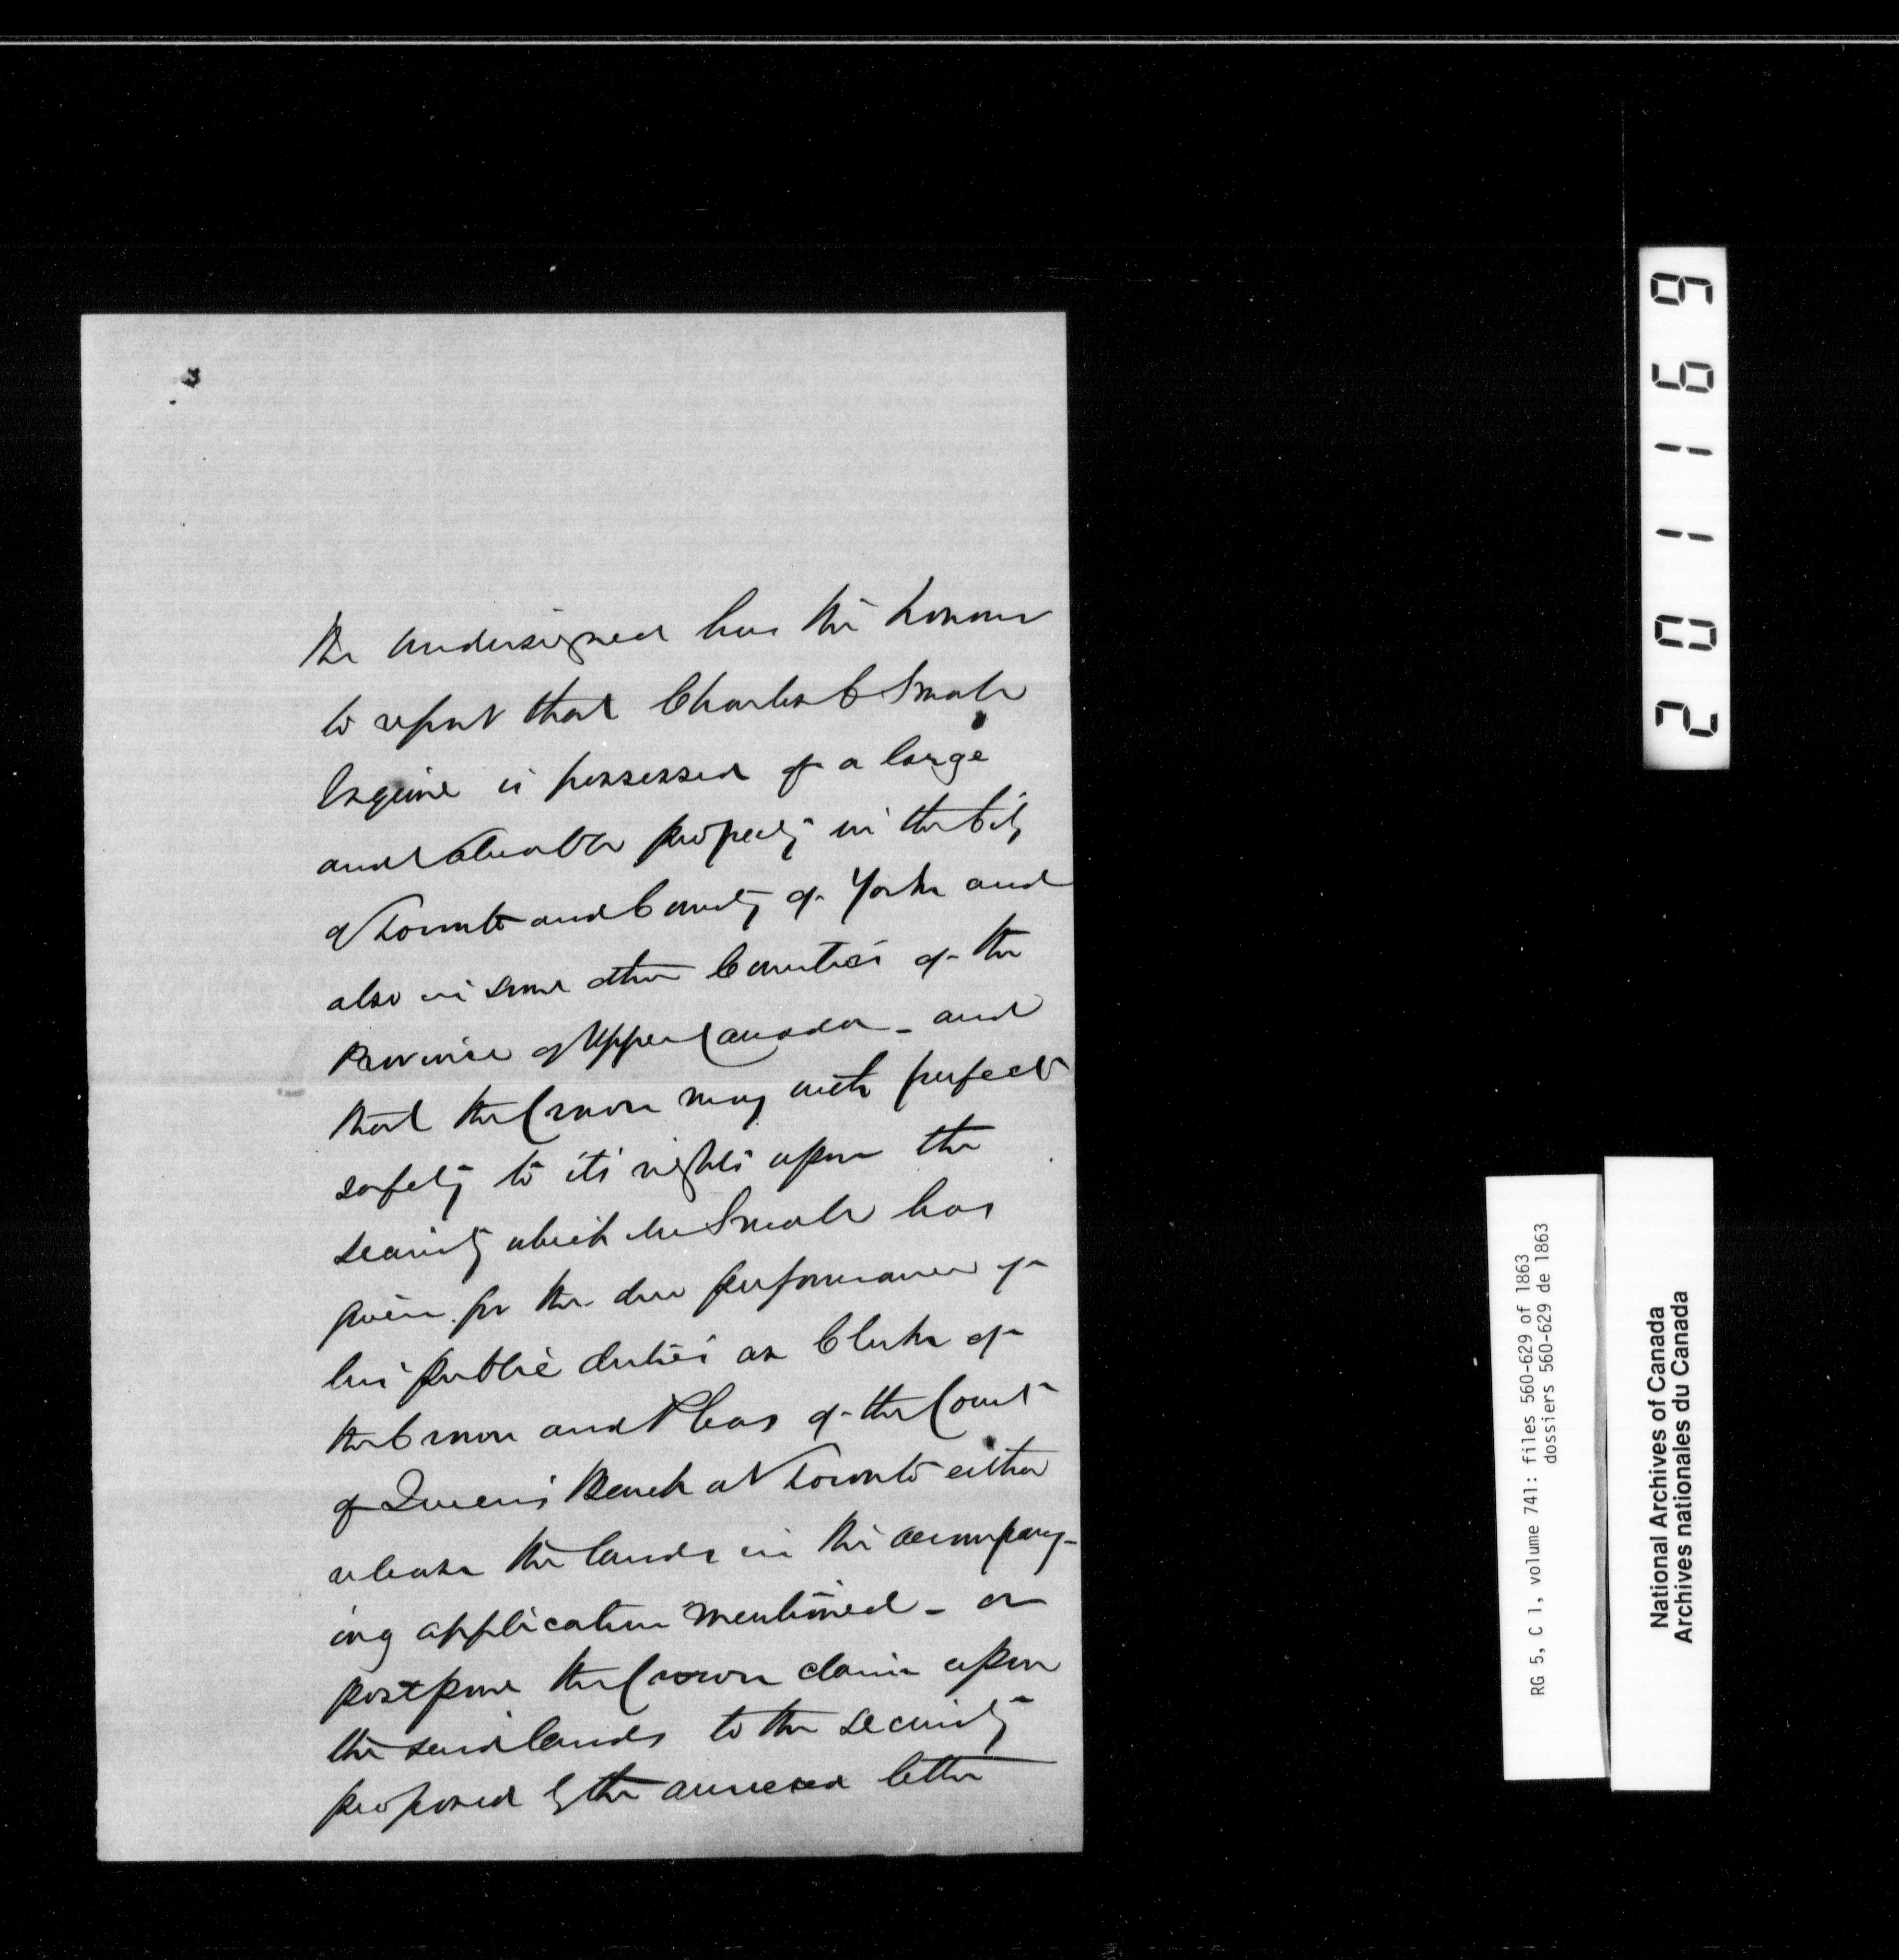 The undersigned has the honour
to report that Charles C Small
Esquire is possessed of a large
and valuable property in the City
of Toronto and County of York and
also in some other Counties of the
Province of Upper Canada - and
that the Crown may with perfect
safety to its rights upon the
security which Mr Small has
given for the due performance of
his public duties as Clerk of
the Crown and Pleas of the Court
of Queen's Bench at Toronto either
release the lands in the accompany-
ing application mentioned - or
postpone the Crown claim upon
the said lands to the security
proposed by the annexed letter
201169
RG 5, C 1, volume 741: files 560-629 of 1863
dossiers 560-629 de 1863
National Archives of Canada
Archives nationales du Canada